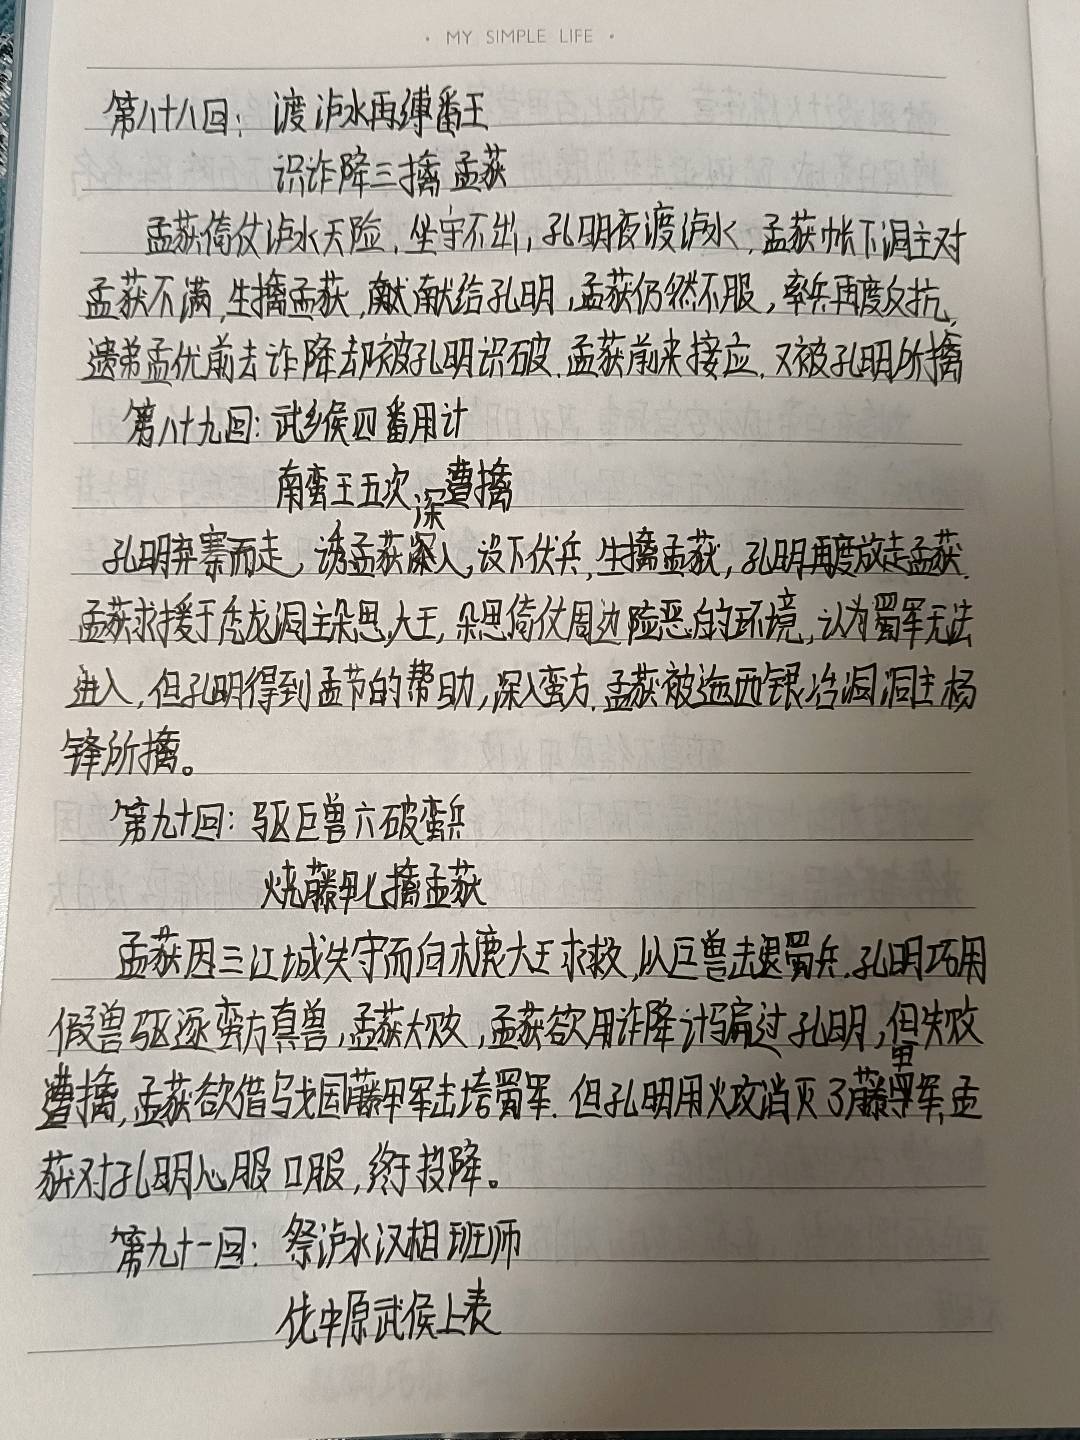 · MY SIMPLE LIFE ·
第八十八回：渡泸水再缚番王
识诈降三擒孟获
孟获倚仗泸水天险，坐守不出，孔明夜渡泸水，孟获帐下洞主对
孟获不满，生擒孟获，献给孔明，孟获仍然不服，率兵再度反抗，
遣弟孟优前去诈降却被孔明识破，孟获前来接应，又被孔明所擒
第八十九回：武乡侯四番用计
南蛮王五次遭擒
孔明弃寨而走，诱孟获深入，设下伏兵，生擒孟获，孔明再度放走孟获.
孟获求援于秃龙洞主朵思大王，朵思倚仗周边险恶的环境，认为蜀军无法
进入，但孔明得到孟节的帮助，深入蛮方.孟获被迤西银冶洞洞主杨
锋所擒。
第九十回：驱巨兽六破蛮兵
烧藤甲七擒孟获
孟获因三江城失守而向木鹿大王求救，从巨兽击退蜀兵.孔明巧用
假兽驱逐蛮方真兽，孟获大败，孟获欲用诈降计骗过孔明，但失败
遭擒，孟获欲借乌戈国藤甲军击垮蜀军.但孔明用火攻消灭了藤甲军，孟
获对孔明心服口服，终于投降。
第九十一回：祭泸水汉相班师
伐中原武侯上表